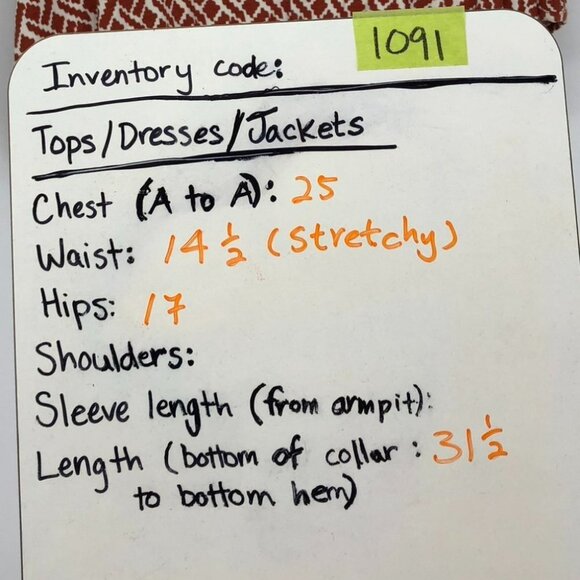 1091
Inventory code:
Tops/Dresses/Jackets
Chest (A to A): 25
Waist: 14 ½ (Stretchy)
Hips: 17
Shoulders:
Sleeve length (from armpit):
Length (bottom of collar : 31 ½
to bottom hem)